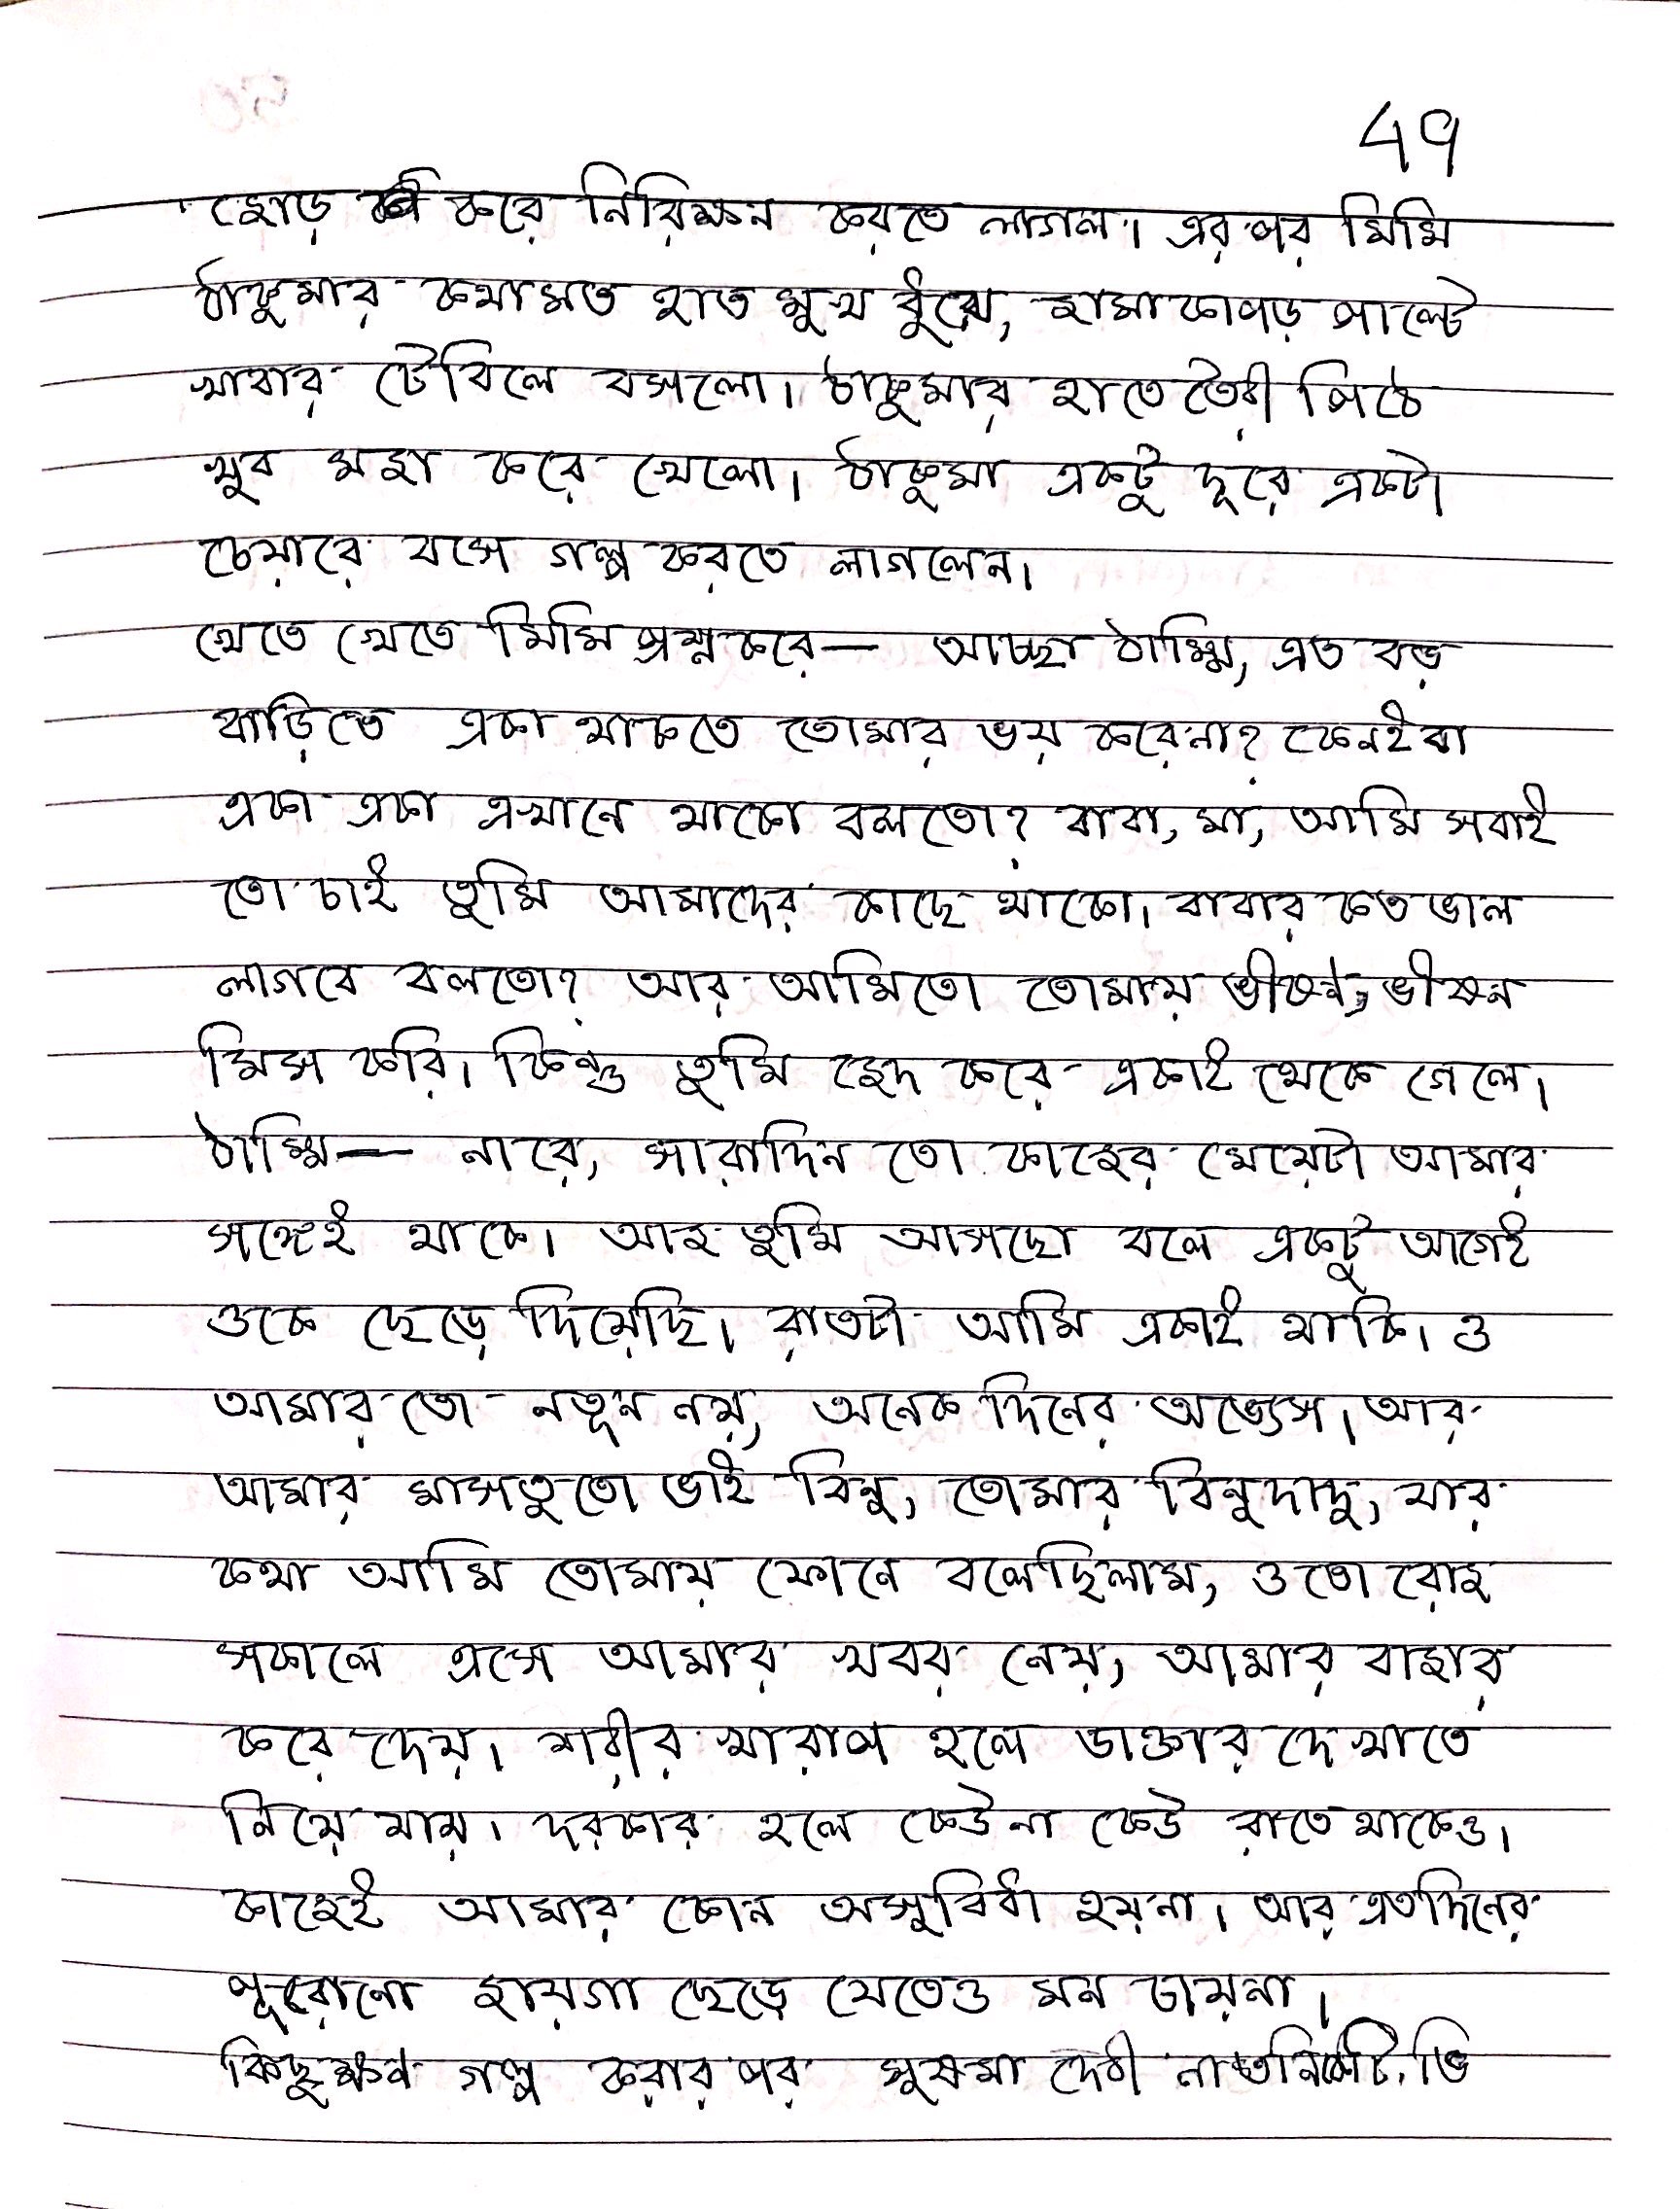 49
জোড় করে নিরিক্ষন করতে লাগল। এর পর মিমি
ঠাকুমার কথামত হাত মুখ ধুঁয়ে, জামা কাপড় পাল্টে
খাবার টেবিলে বসলো। ঠাকুমার হাতে তৈরী পিঠে
খুব মজা করে খেলো। ঠাকুমা একটু দূরে একটা
চেয়ারে বসে গল্প করতে লাগলেন।
খেতে খেতে মিমি প্রশ্ন করে— আচ্ছা ঠাম্মি, এত বড়
বাড়িতে একা থাকতে তোমার ভয় করেনা? কেনইবা
একা একা এখানে থাকো বলতো? বাবা, মা, আমি সবাই
তো চাই তুমি আমাদের কাছে থাকো। বাবার কত ভাল
লাগবে বলতো? আর আমিতো তোমায় ভীষন, ভীষন
মিস করি। কিন্তু তুমি জেদ করে একাই থেকে গেলে।
ঠাম্মি— নারে, সারাদিন তো কাজের মেয়েটা আমার
সঙ্গেই থাকে। আজ তুমি আসছো বলে একটু আগেই
ওকে ছেড়ে দিয়েছি। রাতটা আমি একাই থাকি। ও
আমার তো নতূন নয়, অনেক দিনের অভ্যেস। আর
আমার মাসতুতো ভাই বিনু, তোমার বিনুদাদু, যার
কথা আমি তোমায় ফোনে বলেছিলাম, ও তো রোজ
সকালে এসে আমার খবর নেয়, আমার বাজার
করে দেয়। শরীর খারাপ হলে ডাক্তার দেখাতে
নিয়ে যায়। দরকার হলে কেউ না কেউ রাতে থাকেও।
কাজেই আমার কোন অসুবিধা হয়না। আর এতদিনের
পূরোনো জায়গা ছেড়ে যেতেও মন চায়না।
কিছুক্ষন গল্প করার পর সুষমা দেবী নাতনিকে টি. ভি